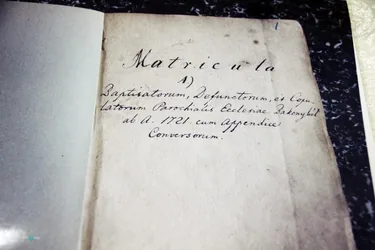 1
Matricula
1)
Baptisatorum, Defunctorum, et Copu
latorum Parochialis Ecclesiae Bakonybél
ab A. 1721 cum Appendice
Conversorum.